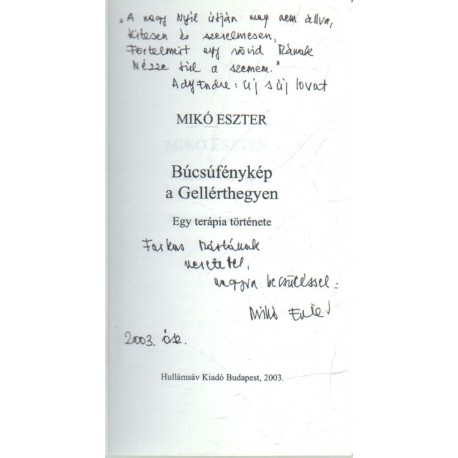 „A nagy Nyil útján meg nem állva,
Hitesen és szerelmesen,
Förtelmeit egy rövid Mának
Nézze túl a szemem."
Ady Endre: Új s új lovat
MIKÓ ESZTER
Búcsúfénykép
a Gellérthegyen
Egy terápia története
Farkas Mártának
szeretettel,
nagyra becsüléssel:
Mikó Eszter
2003. ősz.
Hullámsáv Kiadó Budapest, 2003.